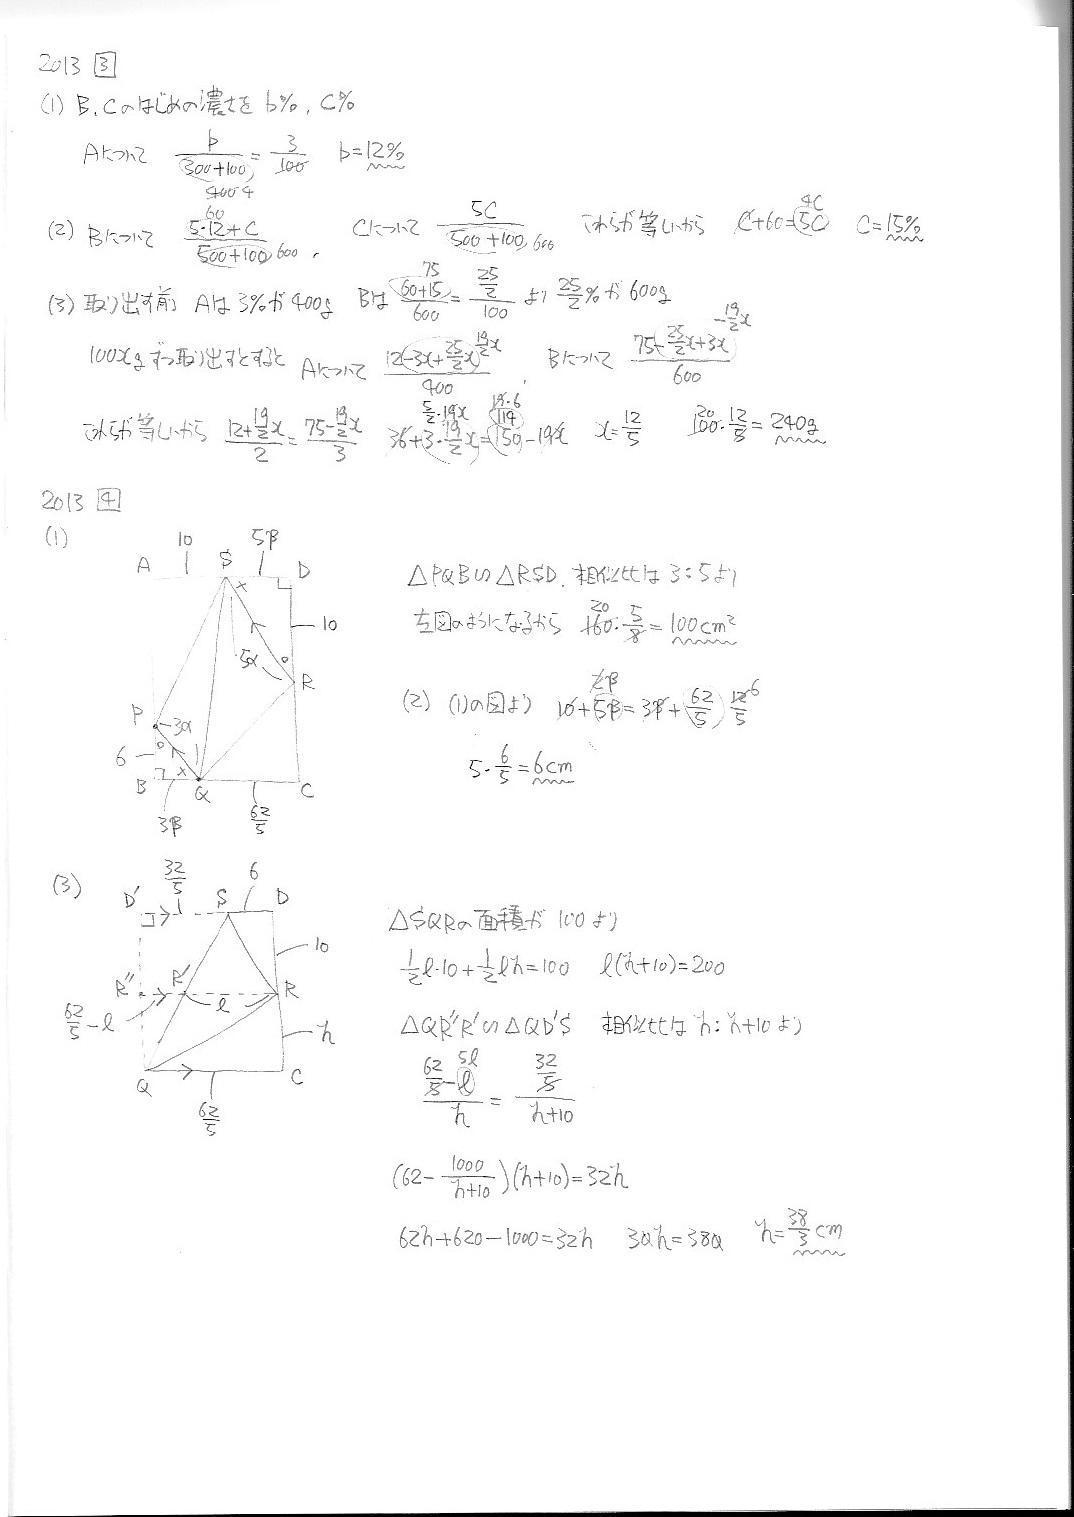 2013 3
(1) B、Cのはじめの濃さを b%, C%
Aについて b/(300+100) = 3/100 b=12%
400 4
(2) Bについて (5·12+C)/(500+100) 60 600, Cについて 5C/(500+100) 600 これらが等しいから C+60=5C 4C C=15%
(3) 取り出す前 Aは3%が400g Bは (60+15)/600 = (25/2)/100 75 より 25/2%が600g
100xgずつ取り出すとすると Aについて (12-3x+25/2x)/400 19/2x, Bについて (75-25/2x+3x)/600 -19/2x
これらが等しいから (12+19/2x)/2 = (75-19/2x)/3 36+3·19/2x=150-19x 5/2·19x 19·6 114 x=12/5 100·12/5=240g 20
2013 4
(1)
10 5β
A S D
×
10
5α
R
P 3α
6
×
B Q C
3β 62/5
△PQB∽△RSD. 相似比は3:5より
左図のようになるから 160·5/8=100cm² 20
(2) (1)の図より 10+5β=3β+62/5 2β 12/5 6
5·6/5=6cm
(3)
32/5 6
D' S D
10
R'' R' l R
62/5-l
h
Q C
62/5
△SQRの面積が100より
1/2l·10+1/2lh=100 l(h+10)=200
△QR''R'∽△QD'S 相似比はh:h+10より
(62/5-l)/h = (32/5)/(h+10) 5l
(62-1000/(h+10))(h+10)=32h
62h+620-1000=32h 30h=380 h=38/3cm